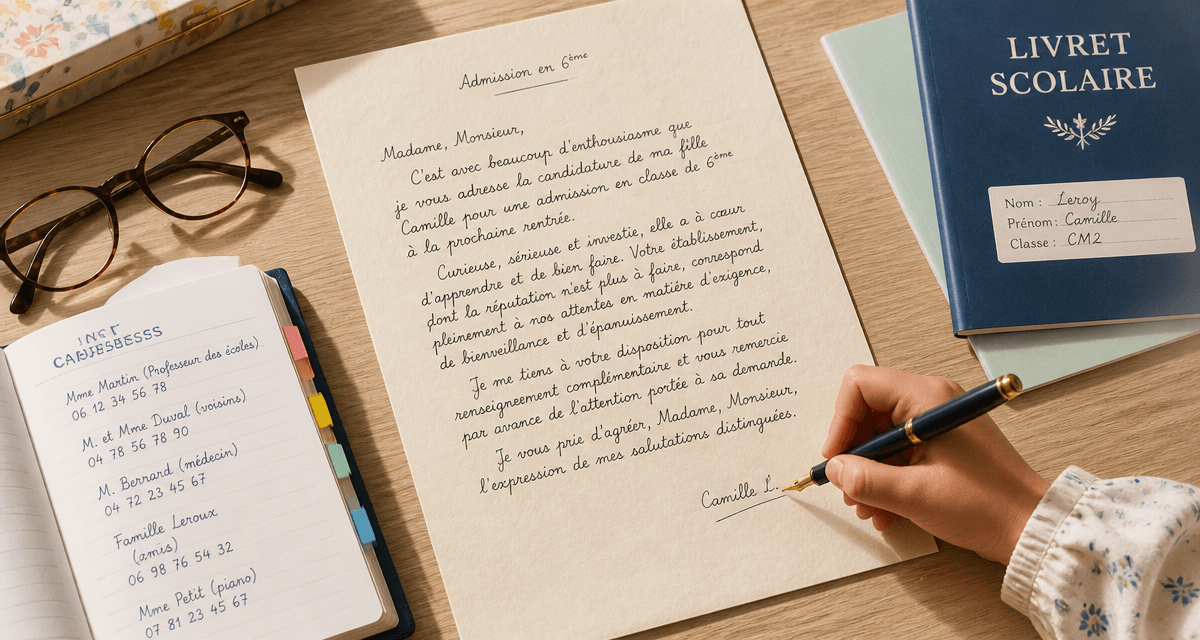 Admission en 6ème
Madame, Monsieur,
C'est avec beaucoup d'enthousiasme que
je vous adresse la candidature de ma fille
Camille pour une admission en classe de 6ème
à la prochaine rentrée.
Curieuse, sérieuse et investie, elle a à cœur
d'apprendre et de bien faire. Votre établissement,
dont la réputation n'est plus à faire, correspond
pleinement à nos attentes en matière d'exigence,
de bienveillance et d'épanouissement.
Je me tiens à votre disposition pour tout
renseignement complémentaire et vous remercie
par avance de l'attention portée à sa demande.
Je vous prie d'agréer, Madame, Monsieur,
l'expression de mes salutations distinguées.
Camille L.
LIVRET
SCOLAIRE
Nom : Leroy
Prénom : Camille
Classe : CM2
Mme Martin (Professeur des écoles)
06 12 34 56 78
M. et Mme Duval (voisins)
04 78 56 78 90
M. Bernard (médecin)
04 72 23 45 67
Famille Leroux
(amis)
06 98 76 54 32
Mme Petit (piano)
07 81 23 45 67